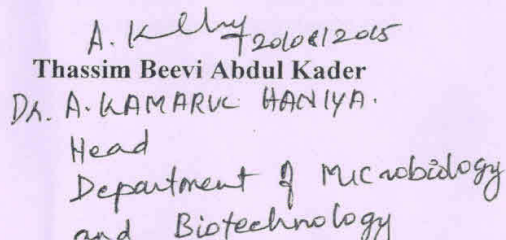 A. K 20/08/2015
Thassim Beevi Abdul Kader
Dr. A. KAMARUL HANIYA.
Head
Department of Microbiology
and Biotechnology